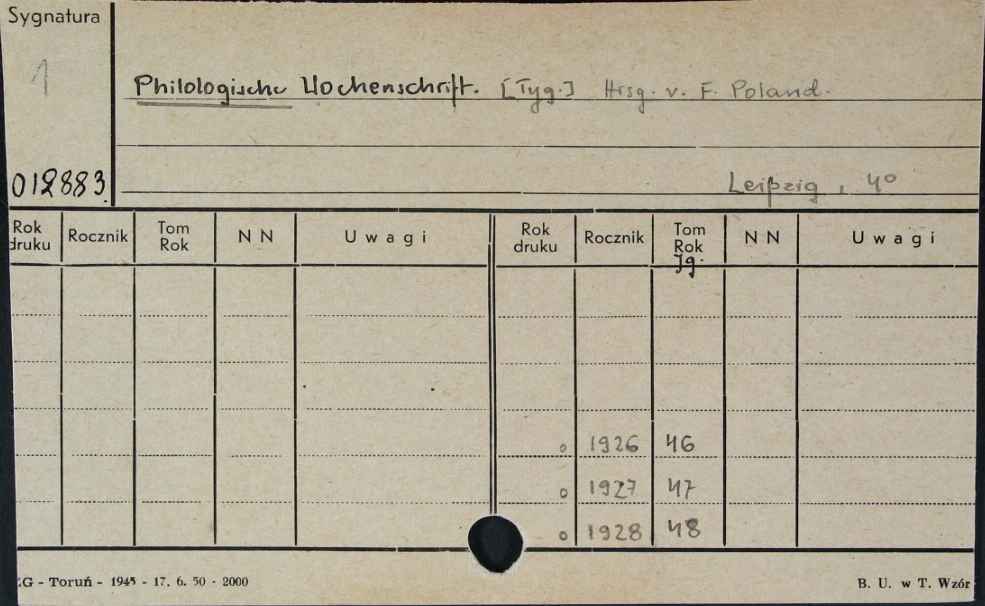 Sygnatura
1
Philologische Wochenschrift. [Tyg.] Hrsg. v. F. Poland.
012883.
Leipzig, 4º
Rok druku Rocznik Tom Rok N N Uwagi Rok druku Rocznik Tom Rok Jg. N N Uwagi
o 1926 46
o 1927 47
o 1928 48
ZG - Toruń - 1945 - 17. 6. 50 - 2000 B. U. w T. Wzór